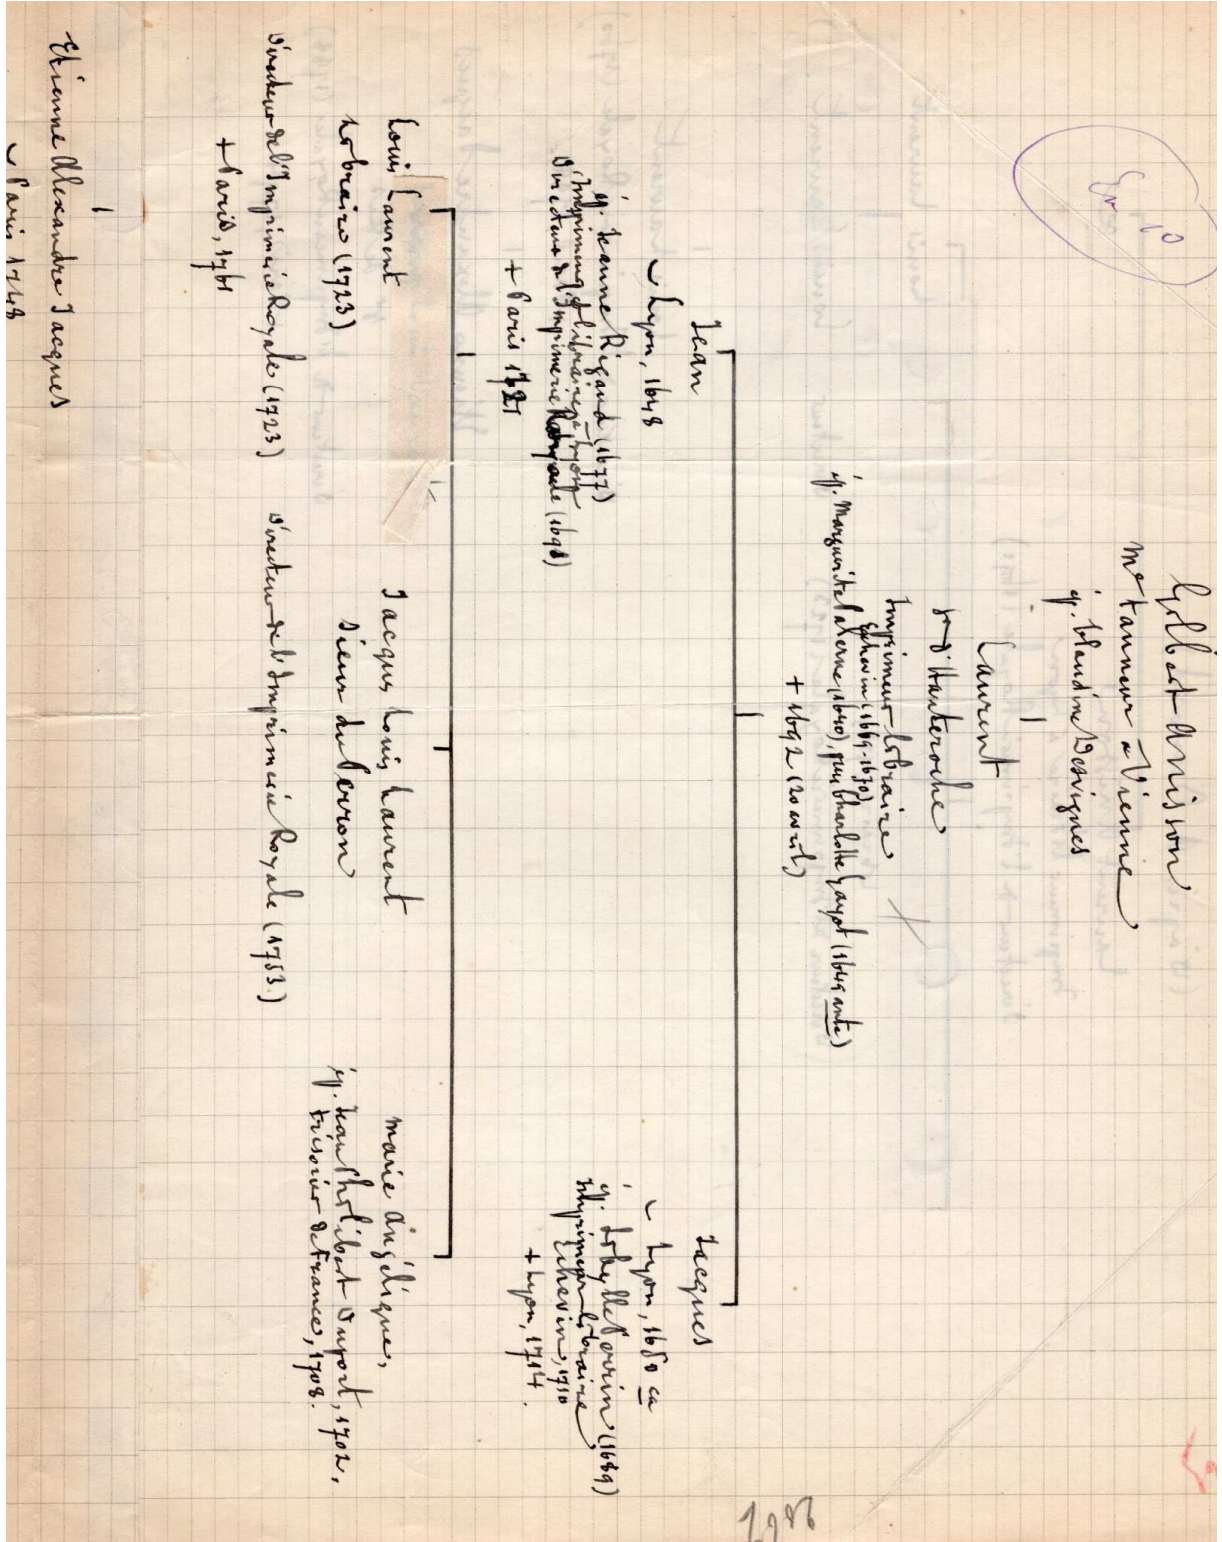 Gilbert Anisson
Me tanneur à Vienne
ép. Claudine Desvignes
Laurent
sr d'Hauteroche
Imprimeur-libraire
Echevin (1669-1670)
ép. Marguerite Paterne (1640), puis Charlotte Gayot (1649 ante)
+ 1692 (20 avril)
Jean
Lyon, 1648
ép. Jeanne Rigaud (1677)
Imprimeur et libraire à Lyon
Directeur de l'Imprimerie Royale (1691)
+ Paris 1721
Jacques
Lyon, 1650 ca
ép. Sibylle Perrin (1689)
Imprimeur-libraire
Echevin, 1710
+ Lyon, 1714.
Louis Laurent
Libraire (1723)
Directeur de l'Imprimerie Royale (1723)
+ Paris, 1761
Jacques Louis Laurent
Sieur du Perron
Directeur de l'Imprimerie Royale (1753.)
Marie Angélique,
ép. Jean Philibert Duport, 1702,
trésorier de France, 1708.
Etienne Alexandre Jacques
Paris 1748